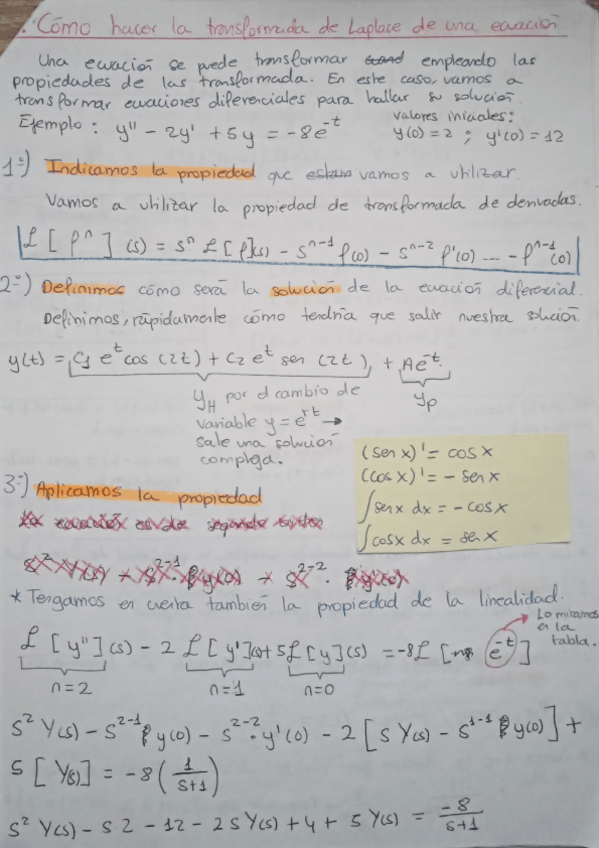 : Cómo hacer la transformada de Laplace de una ecuación
Una ecuación se puede transformar empleando las
propiedades de las transformada. En este caso, vamos a
transformar ecuaciones diferenciales para hallar su solución.
Ejemplo: y'' - 2y' + 5y = -8e^-t
valores iniciales:
y(0) = 2 ; y'(0) = 12
1º) Indicamos la propiedad que vamos a utilizar.
Vamos a utilizar la propiedad de transformada de derivadas.
ℒ[f^n](s) = s^n ℒ[f](s) - s^n-1 f(0) - s^n-2 f'(0) ... - f^n-1(0)
2º) Definimos cómo será la solución de la ecuación diferencial.
Definimos, rápidamente cómo tendría que salir nuestra solución
y(t) = C1 e^t cos(2t) + C2 e^t sen(2t) + Ae^-t.
yH por el cambio de
variable y = e^rt →
sale una solución
compleja.
yp
(sen x)' = cos x
(cos x)' = - sen x
∫sen x dx = - cos x
∫cos x dx = sen x
3º) Aplicamos la propiedad
* Tengamos en cuenta también la propiedad de la linealidad.
Lo miramos
en la
tabla.
ℒ[y''](s) - 2 ℒ[y'](s) + 5ℒ[y](s) = -8ℒ[e^-t]
n=2 n=1 n=0
s^2 Y(s) - s^2-1 y(0) - s^2-2 · y'(0) - 2[s Y(s) - s^1-1 y(0)] +
5[Y(s)] = -8(1/s+1)
s^2 Y(s) - s 2 - 12 - 2s Y(s) + 4 + 5 Y(s) = -8/s+1